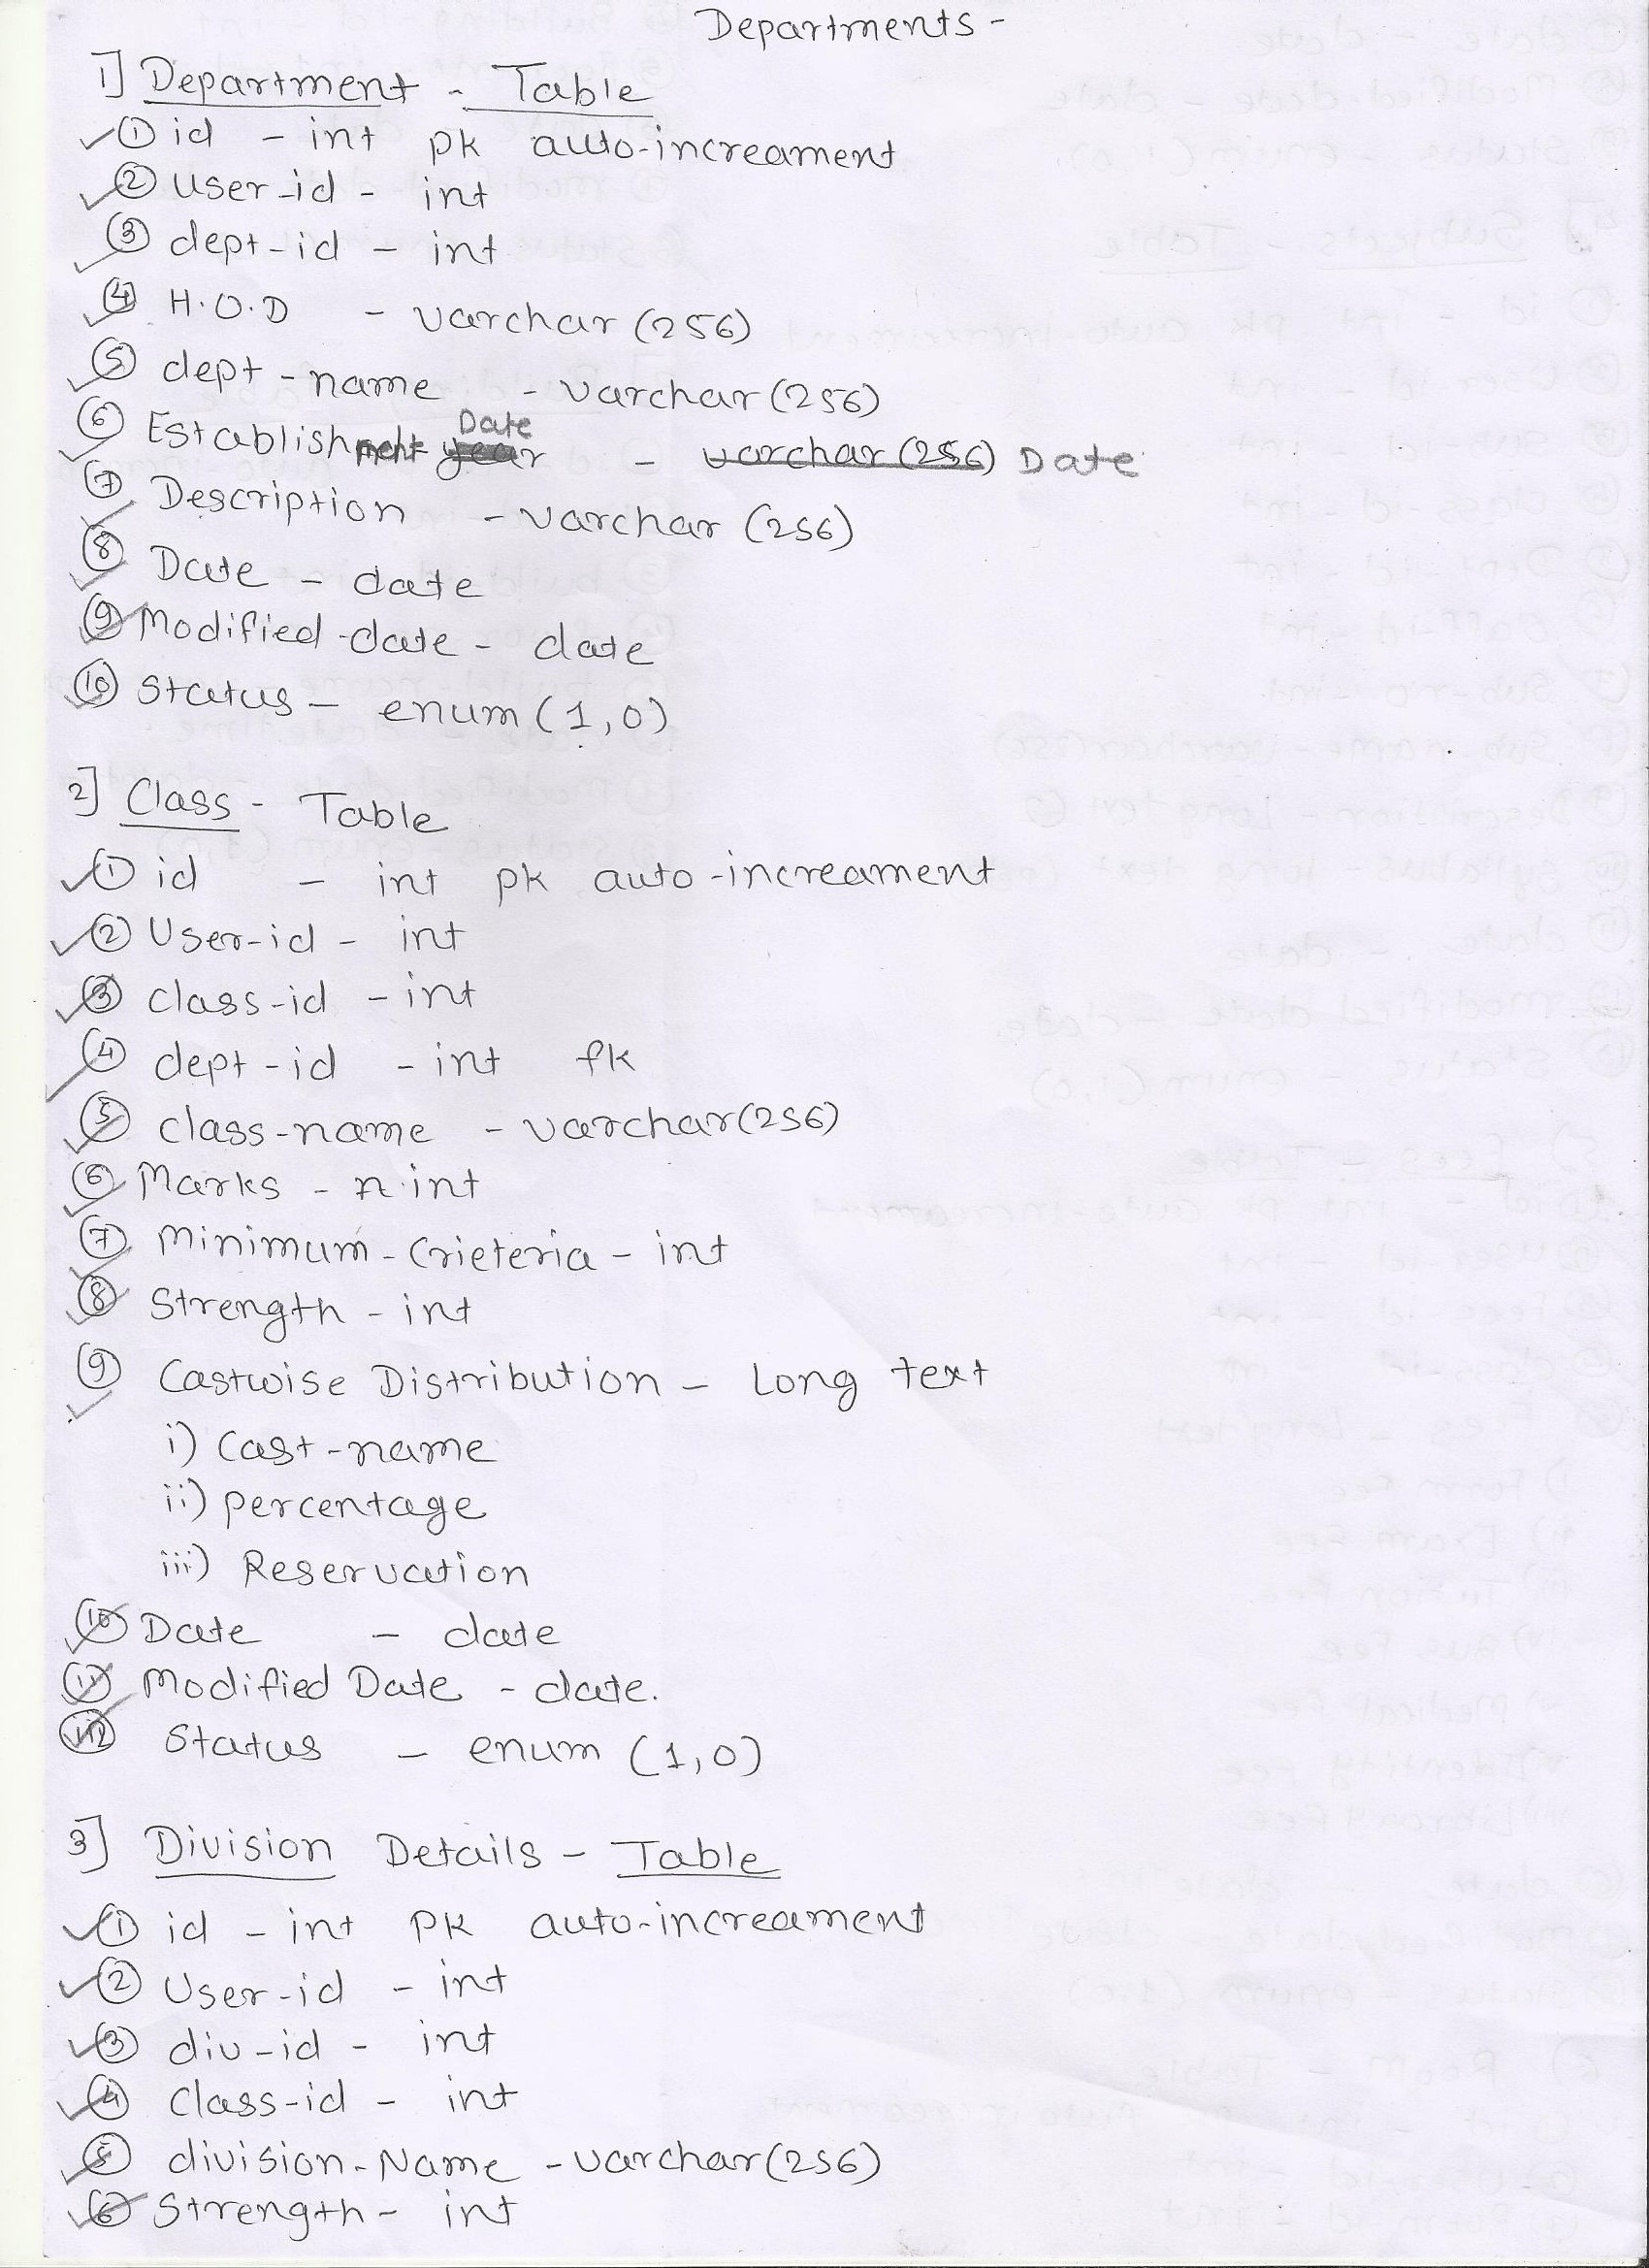 Departments -
1] Department - Table
① id - int pk auto-increament
② user-id - int
③ dept-id - int
④ H.O.D - varchar (256)
⑤ dept-name - varchar (256)
Date
⑥ Establishment year - varchar (256) Date
⑦ Description - varchar (256)
⑧ Date - date
⑨ Modified-date - date
⑩ Status - enum (1,0)
2] Class - Table
① id - int pk auto-increament
② User-id - int
③ class-id - int
④ dept-id - int fk
⑤ class-name - varchar(256)
⑥ Marks - int
⑦ Minimum-Crieteria - int
⑧ Strength - int
⑨ Castwise Distribution - Long text
i) Cast-name
ii) percentage
iii) Reservation
⑩ Date - date
⑪ Modified Date - date.
⑫ Status - enum (1,0)
3] Division Details - Table
① id - int PK auto-increament
② User-id - int
③ div-id - int
④ Class-id - int
⑤ division-Name - varchar(256)
⑥ Strength - int